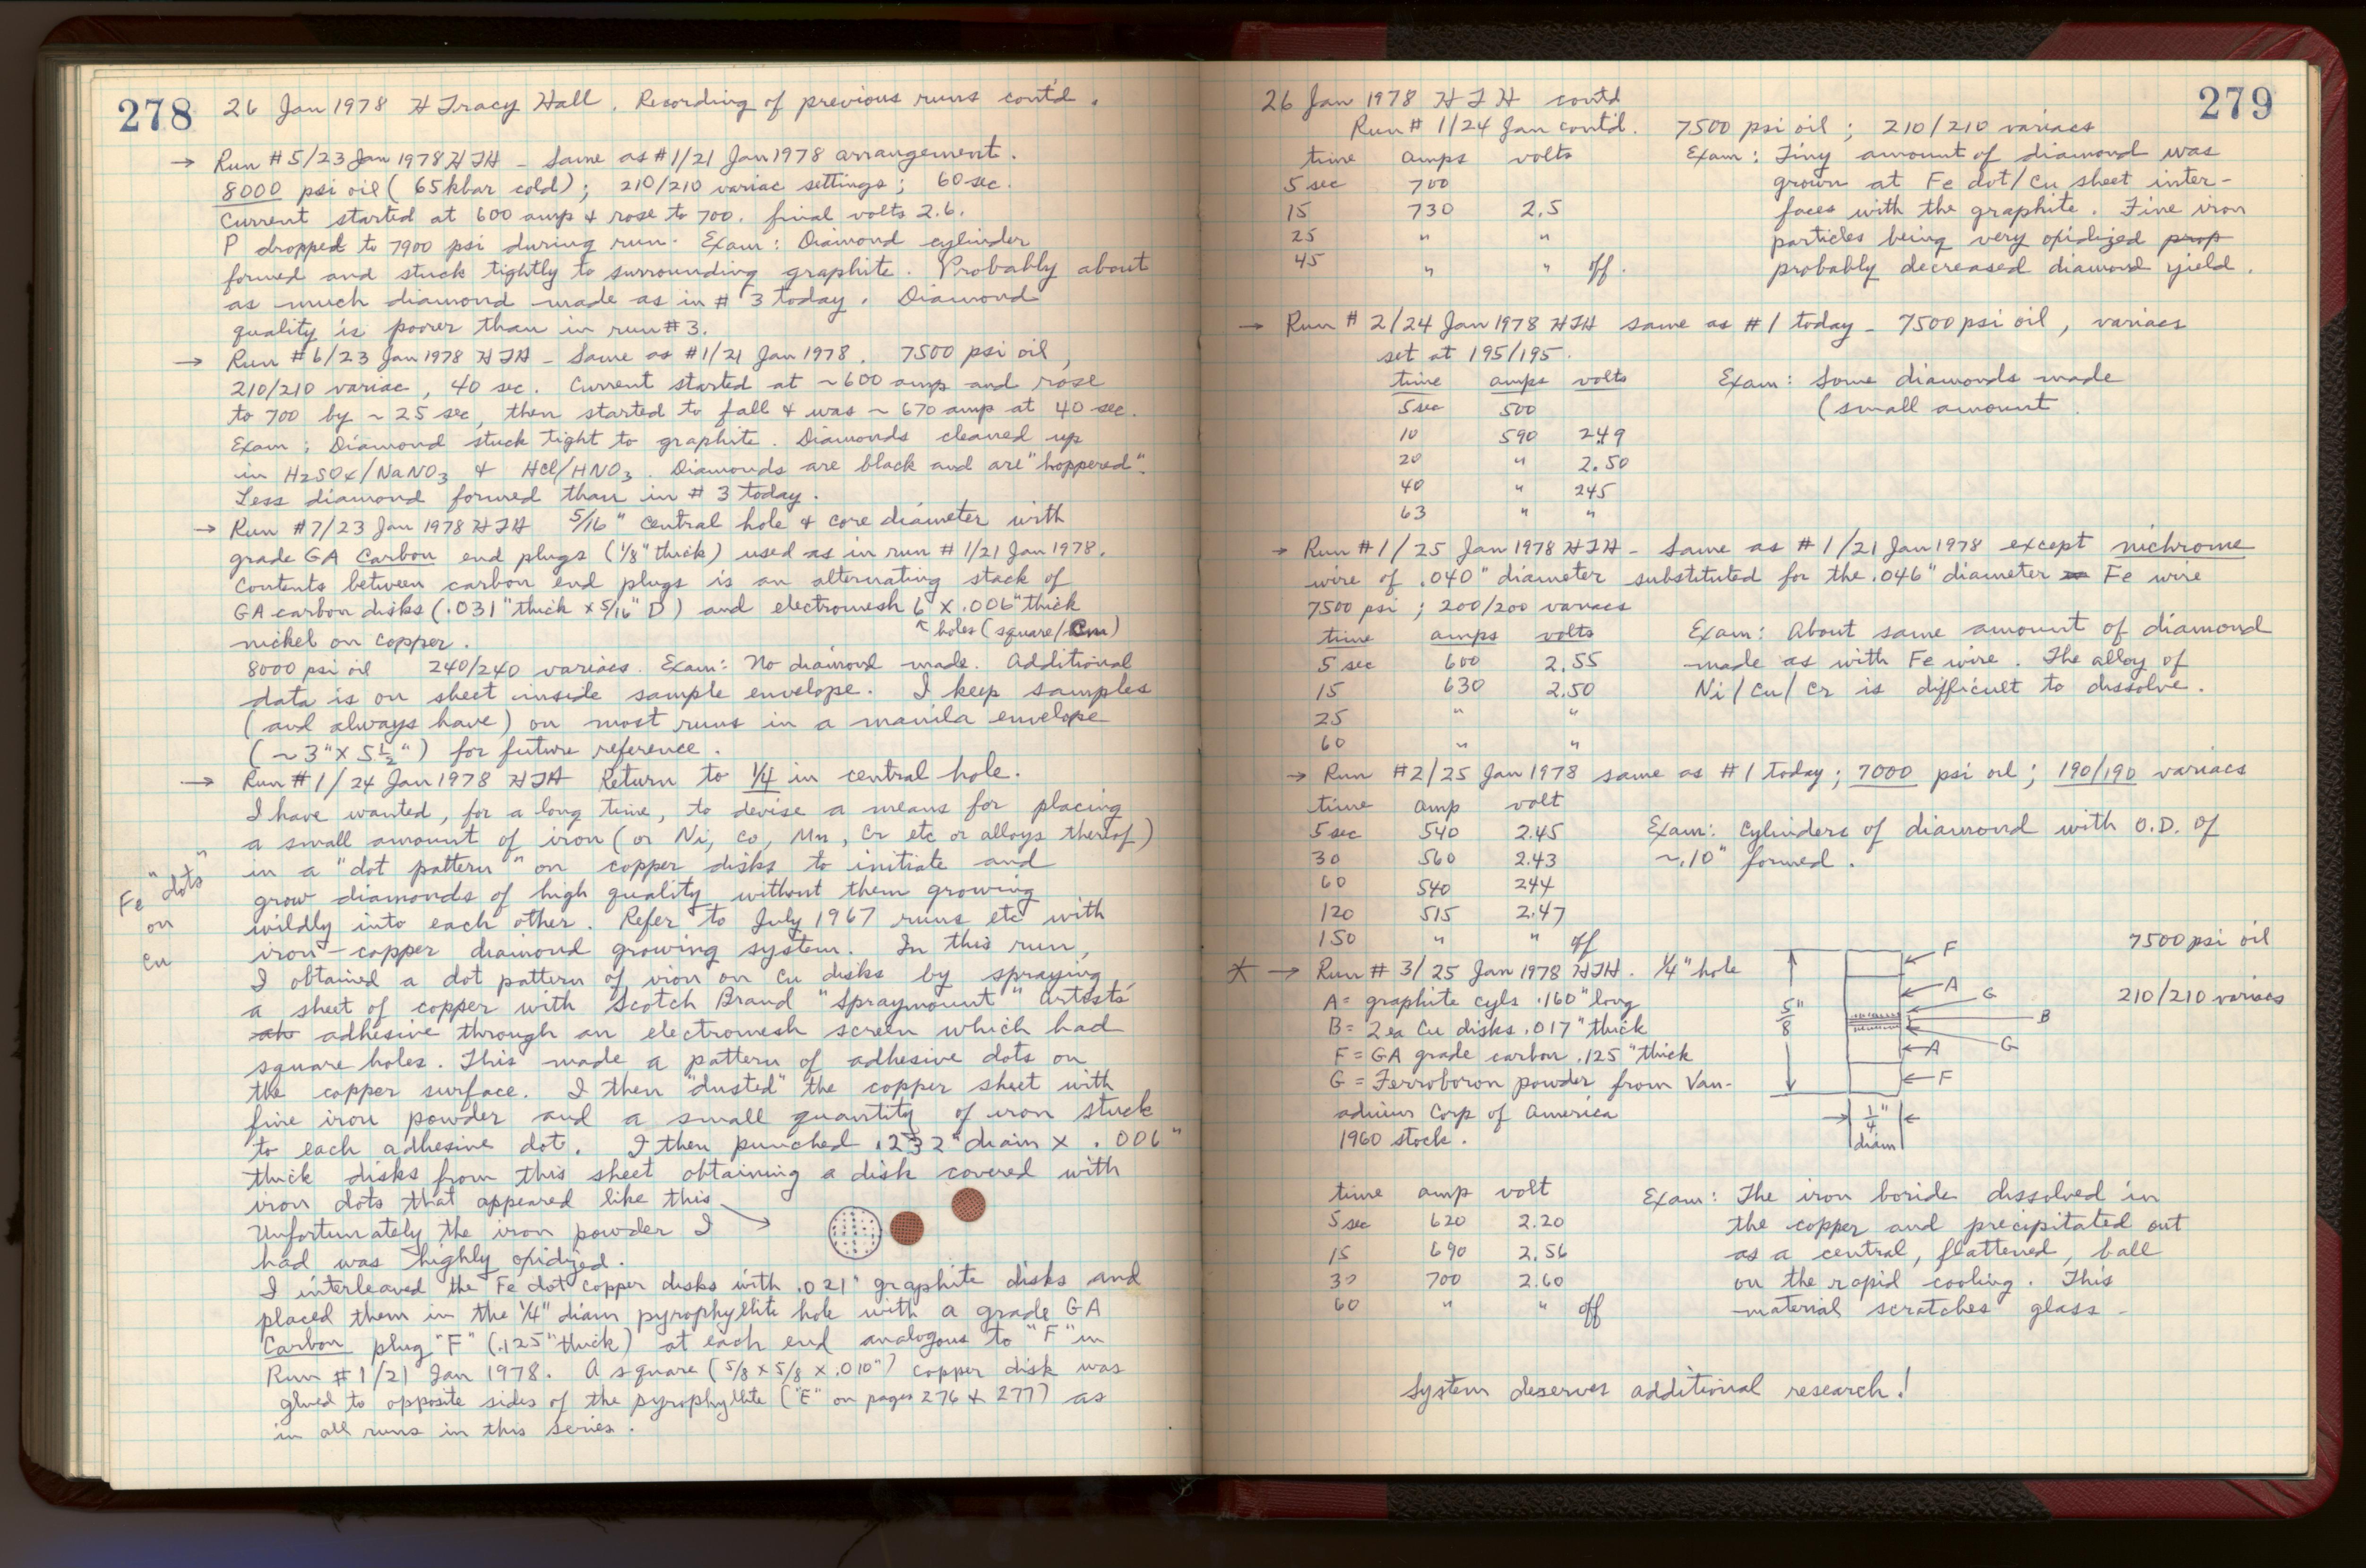 278
26 Jan 1978 H Tracy Hall. Recording of previous runs cont'd.
→ Run #5/23 Jan 1978 HTH - Same as #1/21 Jan 1978 arrangement.
8000 psi oil (65kbar cold); 210/210 variac settings; 60 sec.
Current started at 600 amp & rose to 700. final volts 2.6.
P dropped to 7900 psi during run. Exam: Diamond cylinder
formed and stuck tightly to surrounding graphite. Probably about
as much diamond made as in #3 today. Diamond
quality is poorer than in run #3.
→ Run #6/23 Jan 1978 HTH - Same as #1/21 Jan 1978. 7500 psi oil,
210/210 variac, 40 sec. Current started at ~600 amp and rose
to 700 by ~25 sec, then started to fall & was ~670 amp at 40 sec.
Exam: Diamond stuck tight to graphite. Diamonds cleaned up
in H2SO4/NaNO3 & HCl/HNO3. Diamonds are black and are "hoppered".
Less diamond formed than in #3 today.
→ Run #7/23 Jan 1978 HTH 5/16" central hole & core diameter with
grade GA Carbon end plugs (1/8" thick) used as in run #1/21 Jan 1978.
Contents between carbon end plugs is an alternating stack of
GA carbon disks (.031" thick x 5/16" D) and electromesh 6 x .006" thick
↖ holes (square/cm)
nickel on copper.
8000 psi oil 240/240 variacs. Exam: No diamond made. Additional
data is on sheet inside sample envelope. I keep samples
(and always have) on most runs in a manila envelope
(~3" x 5 1/2") for future reference.
→ Run #1/24 Jan 1978 HTH Return to 1/4 in central hole.
I have wanted, for a long time, to devise a means for placing
a small amount of iron (or Ni, Co, Mn, Cr etc or alloys therof)
in a "dot pattern" on copper disks to initiate and
grow diamonds of high quality without them growing
wildly into each other. Refer to July 1967 runs etc with
iron-copper diamond growing system. In this run,
I obtained a dot pattern of iron on Cu disks by spraying
a sheet of copper with Scotch Brand "Spraymount" artists'
adhesive through an electromesh screen which had
square holes. This made a pattern of adhesive dots on
the copper surface. I then "dusted" the copper sheet with
fine iron powder and a small quantity of iron stuck
to each adhesive dot. I then punched .232" diam x .006"
thick disks from this sheet obtaining a disk covered with
iron dots that appeared like this
Unfortunately the iron powder I
had was highly oxidized.
I interleaved the Fe dot copper disks with .021" graphite disks and
placed them in the 1/4" diam pyrophyllite hole with a grade GA
Carbon plug "F" (.125" thick) at each end analogous to "F" in
Run #1/21 Jan 1978. A square (5/8 x 5/8 x .010") copper disk was
glued to opposite sides of the pyrophyllite ("E" on pages 276 & 277) as
in all runs in this series.
Fe "dots"
on
Cu
279
26 Jan 1978 HTH contd
Run # 1/24 Jan cont'd. 7500 psi oil; 210/210 variacs
time amps volts
5 sec 700
15 730 2.5
25 " "
45 " " off.
Exam: Tiny amount of diamond was
grown at Fe dot/Cu sheet inter-
faces with the graphite. Fine iron
particles being very oxidized prop
probably decreased diamond yield.
→ Run # 2/24 Jan 1978 HTH same as #1 today - 7500 psi oil, variacs
set at 195/195.
time amps volts
5 sec 500
10 590 2.49
20 " 2.50
40 " 245
63 " "
Exam: Some diamonds made
(small amount
→ Run #1/25 Jan 1978 HTH - Same as #1/21 Jan 1978 except nichrome
wire of .040" diameter substituted for the .046" diameter Fe wire
7500 psi; 200/200 variacs
time amps volts
5 sec 600 2.55
15 630 2.50
25 " "
60 " "
Exam: About same amount of diamond
made as with Fe wire. The alloy of
Ni/Cu/Cr is difficult to dissolve.
→ Run #2/25 Jan 1978 same as #1 today; 7000 psi oil; 190/190 variacs
time amp volt
5 sec 540 2.45
30 560 2.43
60 540 244
120 515 2.47
150 " " off
Exam: Cylinders of diamond with O.D. of
~.10" formed.
* → Run # 3/25 Jan 1978 HTH. 1/4" hole
A = graphite cyls .160" long
B = 2 ea Cu disks .017" thick
F = GA grade carbon .125" thick
G = Ferroboron powder from Van-
adium Corp of America
1960 stock.
5"/8
F
A
G
B
G
A
F
1/4"
diam
7500 psi oil
210/210 variacs
time amp volt
5 sec 620 2.20
15 690 2.56
30 700 2.60
60 " " off
Exam: The iron boride dissolved in
the copper and precipitated out
as a central, flattened, ball
on the rapid cooling. This
material scratches glass.
System deserves additional research!